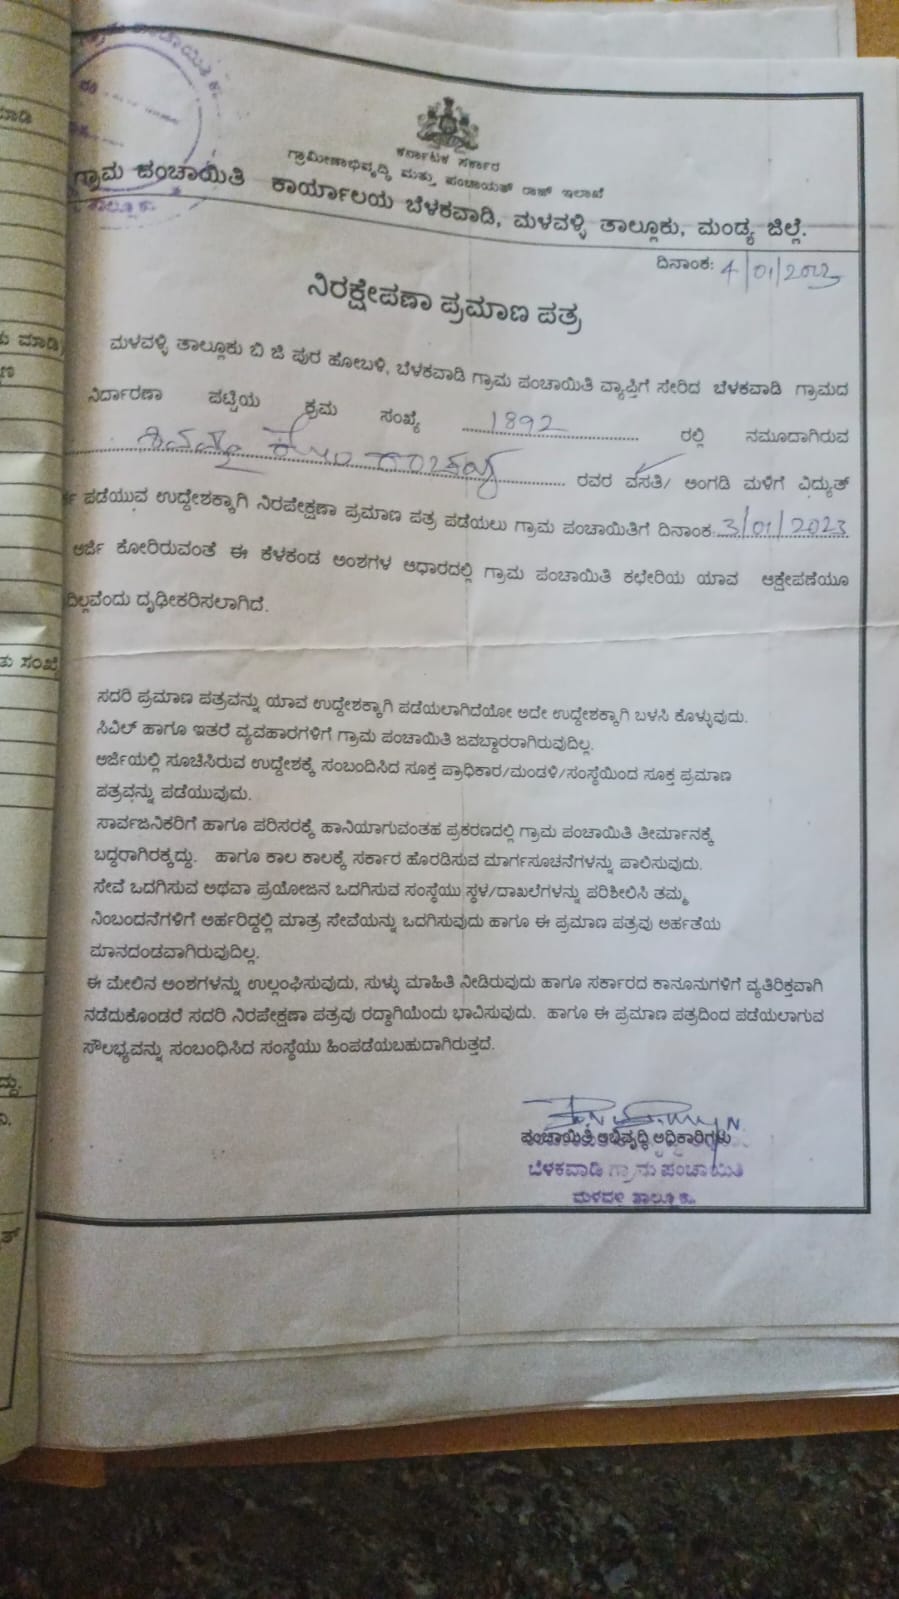 ಗ್ರಾಮ ಪಂಚಾಯಿತಿ ಕ.
ತಾಲ್ಲೂಕು.
ಕರ್ನಾಟಕ ಸರ್ಕಾರ
ಗ್ರಾಮೀಣಾಭಿವೃದ್ಧಿ ಮತ್ತು ಪಂಚಾಯತ್ ರಾಜ್ ಇಲಾಖೆ
ಗ್ರಾಮ ಪಂಚಾಯಿತಿ ಕಾರ್ಯಾಲಯ ಬೆಳಕವಾಡಿ, ಮಳವಳ್ಳಿ ತಾಲ್ಲೂಕು, ಮಂಡ್ಯ ಜಿಲ್ಲೆ.
ದಿನಾಂಕ: 4/01/2023
ನಿರಕ್ಷೇಪಣಾ ಪ್ರಮಾಣ ಪತ್ರ
ಮಳವಳ್ಳಿ ತಾಲ್ಲೂಕು ಬಿ ಜಿ ಪುರ ಹೋಬಳಿ, ಬೆಳಕವಾಡಿ ಗ್ರಾಮ ಪಂಚಾಯಿತಿ ವ್ಯಾಪ್ತಿಗೆ ಸೇರಿದ ಬೆಳಕವಾಡಿ ಗ್ರಾಮದ
ನಿರ್ದಾರಣಾ ಪಟ್ಟಿಯ ಕ್ರಮ ಸಂಖ್ಯೆ 1892 ರಲ್ಲಿ ನಮೂದಾಗಿರುವ
ರವರ ವಸತಿ/ ಅಂಗಡಿ ಮಳಿಗೆ ವಿದ್ಯುತ್
ಪಡೆಯುವ ಉದ್ದೇಶಕ್ಕಾಗಿ ನಿರಪೇಕ್ಷಣಾ ಪ್ರಮಾಣ ಪತ್ರ ಪಡೆಯಲು ಗ್ರಾಮ ಪಂಚಾಯಿತಿಗೆ ದಿನಾಂಕ: 3/01/2023
ಅರ್ಜಿ ಕೋರಿರುವಂತೆ ಈ ಕೆಳಕಂಡ ಅಂಶಗಳ ಆಧಾರದಲ್ಲಿ ಗ್ರಾಮ ಪಂಚಾಯಿತಿ ಕಛೇರಿಯ ಯಾವ ಆಕ್ಷೇಪಣೆಯೂ
ದಿಲ್ಲವೆಂದು ದೃಢೀಕರಿಸಲಾಗಿದೆ.
ಸದರಿ ಪ್ರಮಾಣ ಪತ್ರವನ್ನು ಯಾವ ಉದ್ದೇಶಕ್ಕಾಗಿ ಪಡೆಯಲಾಗಿದೆಯೋ ಅದೇ ಉದ್ದೇಶಕ್ಕಾಗಿ ಬಳಸಿ ಕೊಳ್ಳುವುದು.
ಸಿವಿಲ್ ಹಾಗೂ ಇತರೆ ವ್ಯವಹಾರಗಳಿಗೆ ಗ್ರಾಮ ಪಂಚಾಯಿತಿ ಜವಬ್ದಾರರಾಗಿರುವುದಿಲ್ಲ.
ಅರ್ಜಿಯಲ್ಲಿ ಸೂಚಿಸಿರುವ ಉದ್ದೇಶಕ್ಕೆ ಸಂಬಂದಿಸಿದ ಸೂಕ್ತ ಪ್ರಾಧಿಕಾರ/ಮಂಡಳಿ/ಸಂಸ್ಥೆಯಿಂದ ಸೂಕ್ತ ಪ್ರಮಾಣ
ಪತ್ರವನ್ನು ಪಡೆಯುವುದು.
ಸಾರ್ವಜನಿಕರಿಗೆ ಹಾಗೂ ಪರಿಸರಕ್ಕೆ ಹಾನಿಯಾಗುವಂತಹ ಪ್ರಕರಣದಲ್ಲಿ ಗ್ರಾಮ ಪಂಚಾಯಿತಿ ತೀರ್ಮಾನಕ್ಕೆ
ಬದ್ದರಾಗಿರಕ್ಕದ್ದು. ಹಾಗೂ ಕಾಲ ಕಾಲಕ್ಕೆ ಸರ್ಕಾರ ಹೊರಡಿಸುವ ಮಾರ್ಗಸೂಚನೆಗಳನ್ನು ಪಾಲಿಸುವುದು.
ಸೇವೆ ಒದಗಿಸುವ ಅಥವಾ ಪ್ರಯೋಜನ ಒದಗಿಸುವ ಸಂಸ್ಥೆಯು ಸ್ಥಳ/ದಾಖಲೆಗಳನ್ನು ಪರಿಶೀಲಿಸಿ ತಮ್ಮ
ನಿಂಬಂದನೆಗಳಿಗೆ ಅರ್ಹರಿದ್ದಲ್ಲಿ ಮಾತ್ರ ಸೇವೆಯನ್ನು ಒದಗಿಸುವುದು ಹಾಗೂ ಈ ಪ್ರಮಾಣ ಪತ್ರವು ಅರ್ಹತೆಯ
ಮಾನದಂಡವಾಗಿರುವುದಿಲ್ಲ.
ಈ ಮೇಲಿನ ಅಂಶಗಳನ್ನು ಉಲ್ಲಂಘಿಸುವುದು, ಸುಳ್ಳು ಮಾಹಿತಿ ನೀಡಿರುವುದು ಹಾಗೂ ಸರ್ಕಾರದ ಕಾನೂನುಗಳಿಗೆ ವ್ಯತಿರಿಕ್ತವಾಗಿ
ನಡೆದುಕೊಂಡರೆ ಸದರಿ ನಿರಪೇಕ್ಷಣಾ ಪತ್ರವು ರದ್ದಾಗಿಯೆಂದು ಭಾವಿಸುವುದು. ಹಾಗೂ ಈ ಪ್ರಮಾಣ ಪತ್ರದಿಂದ ಪಡೆಯಲಾಗುವ
ಸೌಲಭ್ಯವನ್ನು ಸಂಬಂಧಿಸಿದ ಸಂಸ್ಥೆಯು ಹಿಂಪಡೆಯಬಹುದಾಗಿರುತ್ತದೆ.
ಪಂಚಾಯಿತಿ ಅಭಿವೃದ್ಧಿ ಅಧಿಕಾರಿಗಳು
ಬೆಳಕವಾಡಿ ಗ್ರಾಮ ಪಂಚಾಯಿತಿ
ಮಳವಳ್ಳಿ ತಾಲ್ಲೂಕು.